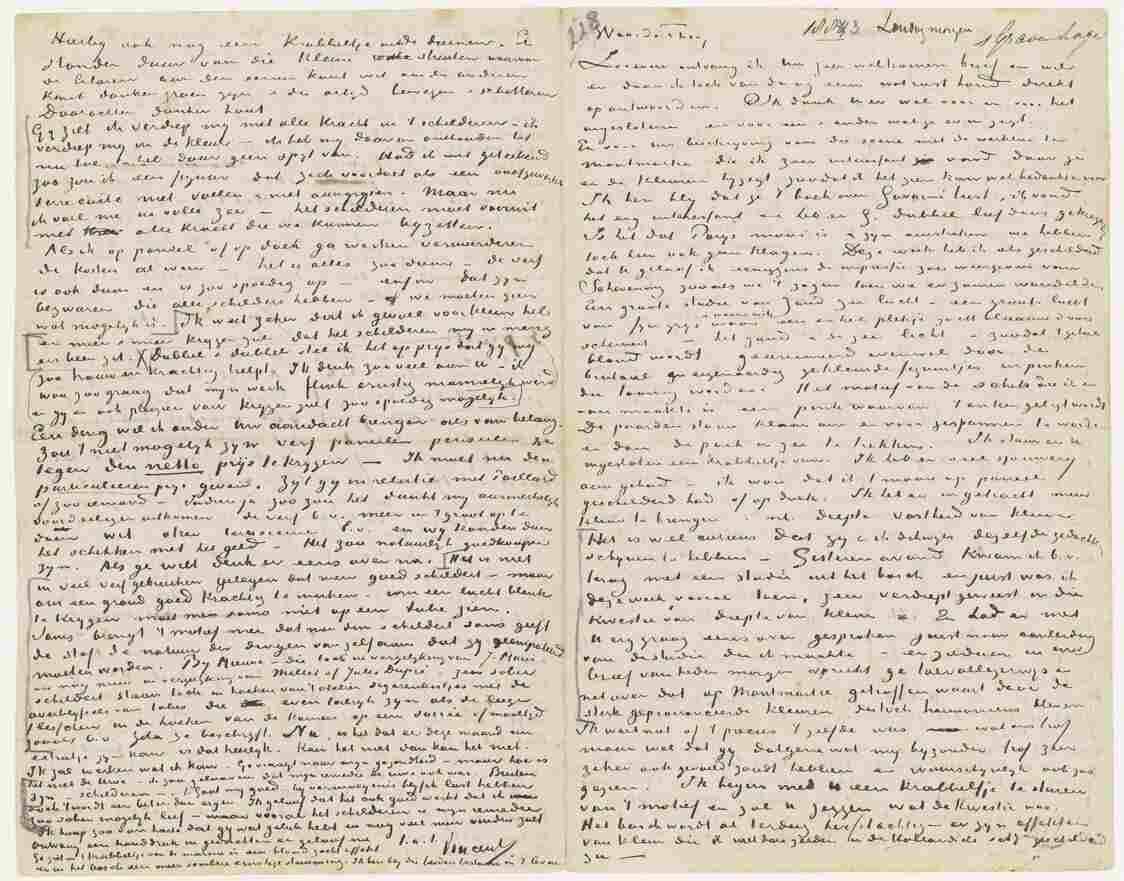 Hierbij ook nog een krabbeltje van de duinen. Er
stonden daar van die kleine struiken waarvan
de blaren aan den eenen kant wit aan den anderen
kant donkergroen zijn & die altijd bewegen & schitteren
Daarachter donker hout
Gij ziet ik verdiep mij met alle kracht in 't schilderen – ik
verdiep mij in de kleur – ik heb mij daarvan onthouden tot
nu toe en heb daar geen spijt van. Had ik niet geteekend
zoo zou ik een figuur dat zich voordoet als een onafgewerkte
terre cuite niet voelen & niet aangrijpen. Maar nu
ik voel me in volle zee – het schilderen moet vooruit
met alle kracht die we kunnen bijzetten.
Als ik op paneel of op doek ga werken vermeerderen
de kosten al weer – het is alles zoo duur – de verf
is ook duur en is zoo spoedig op – enfin dat zijn
bezwaren die alle schilders hebben – we moeten zien
wat mogelijk is. Ik weet zeker dat ik gevoel voor kleur heb
en meer & meer krijgen zal dat het schilderen mij in merg
en been zit. Dubbel & dubbel stel ik het op prijs dat gij mij
zoo trouw en krachtig helpt. Ik denk zooveel aan U – ik
wou zoo graag dat mijn werk flink ernstig mannelijk werd
en gij er ook plezier van krijgen zult zoo spoedig mogelijk.
Een ding wil ik onder Uw aandacht brengen als van belang.
Zou 't niet mogelijk zijn verf paneelen penseelen &c.
tegen den netto prijs te krijgen – Ik moet nu den
particulieren prijs geven. Zijt gij in relatie met Paillard
of zoo iemand – Indien ja zoo zou het dunkt mij aanmerkelijk
voordeeliger uitkomen de verf b.v. meer in 't groot op te
doen wit oker terra sienna b.v. en wij konden dan
het schikken met het geld – Het zou natuurlijk goedkooper
zijn. Als ge wilt denk er eens over na. Het is niet
in veel verf gebruiken gelegen dat men goed schildert – maar
om een grond goed krachtig te maken – om een lucht blank
te krijgen moet men soms niet op een tube zien.
Soms brengt 't motief mee dat men dun schildert soms geeft
de stof de natuur der dingen van zelf aan dat zij geempateerd
moeten worden. Bij Mauve – die toch in vergelijking van J. Maris
en nog meer in vergelijking van Millet of Jules Dupré zeer sober
schildert staan toch in hoeken van 't atelier sigarenkistjes met de
overblijfsels van tubes die even talrijk zijn als de leege
flesschen in de hoeken van de kamer op een soirée of maaltijd
zooals b.v. Zola ze beschrijft. Nu, is het dat er deze maand een
extraatje zijn kan is dat heerlijk. Kan het niet dan kan het niet.
Ik zal werken wat ik kan – Ge vraagt naar mijn gezondheid – maar hoe is
het met de Uwe – ik zou gelooven dat mijn remedie de uwe ook was. Buiten
zijn schilderen – 't gaat mij goed bij vermoeienis blijf ik last hebben
doch 't wordt eer beter dan erger. Ik geloof dat het ook goed werkt dat ik
zoo sober mogelijk leef – maar vooral het schilderen is mijn remedie
Ik hoop zoo van harte dat gij wat geluk hebt en nog veel meer vinden zult
Ontvang een handdruk in gedachten en geloof me t.a.t.
Vincent
Ge ziet in 't krabbeltje van de marine is een blond zacht effekt
en in het bosch een meer sombere ernstige stemming. Ik ben blij die beiden bestaan in 't leven
228
Waarde Theo,
Zondag morgen
's Gravenhage
Zooeven ontvang ik Uw zeer welkomen brief en wil
er daar ik toch vandaag eens wat rust houd direkt
op antwoorden. Ik dank U er wel voor en voor het
ingeslotene en voor een en ander wat ge er in zegt.
En voor Uw beschrijving van die scene met de werklui te
Montmartre die ik zeer interessant vond daar ge
er de kleuren bij zegt zoodat ik het zien kan wel bedankt er voor
Ik ben blij dat ge 't boek over Gavarni leest, ik vond
het erg interessant en heb er G. dubbel lief door gekregen
Is het dat Parijs mooi is & zijn omstreken we hebben
toch hier ook geen klagen. Deze week heb ik iets geschilderd
dat ik geloof ik eenigzins de impressie zou weergeven van
Schevening zooals we 't zagen toen we er zamen wandelden
Een groote studie van zand zee lucht – een groote lucht
van fijn grijs & warm wit waarin een enkel plekje zacht blaauw doorschemert
– het zand & de zee licht – zoodat 't geheel
blond wordt geanimeerd evenwel door de
brutaal en eigenaardig gekleurde figuurtjes en pinken
die toonig worden. Het motief van de schets die ik er
van maakte is een pink waarvan 't anker geligt wordt
De paarden staan klaar om er voor gespannen te worden
en dan de pink in zee te trekken. Ik stuur er U
ingesloten een krabbeltje van. Ik heb er veel sjouwerij
aan gehad – ik wou dat ik 't maar op paneel
geschilderd had of op doek. Ik heb er in getracht meer
kleur te brengen nl. diepte vastheid van kleur.
Het is wel curieus dat gij & ik dikwijls dezelfde gedachten
schijnen te hebben – Gisteren avond kwam ik b.v.
terug met een studie uit het bosch en juist was ik
deze week vooral toen, zeer verdiept geweest in die
kwestie van diepte van kleur. & had er met
U erg graag eens over gesproken juist naar aanleiding
van de studie die ik maakte – en ziedaar in Uwen
brief van heden morgen spreekt ge toevalligerwijs er
net over dat op Montmartre getroffen waart door de
sterk geprononceerde kleuren die toch harmonieus bleven
Ik weet niet of 't precies 't zelfde was wat ons trof
maar wel dat gij datgene wat mij bijzonder trof zeer
zeker ook gevoeld zoudt hebben en waarschijnlijk ook zoo
gezien. Ik begin met U een krabbeltje te sturen
van 't motief en zal U zeggen wat de kwestie was.
Het bosch wordt al terdeeg herfstachtig – er zijn effekten
van kleur die ik niet dan zelden in de hollandsche schij. geschilderd
zie –